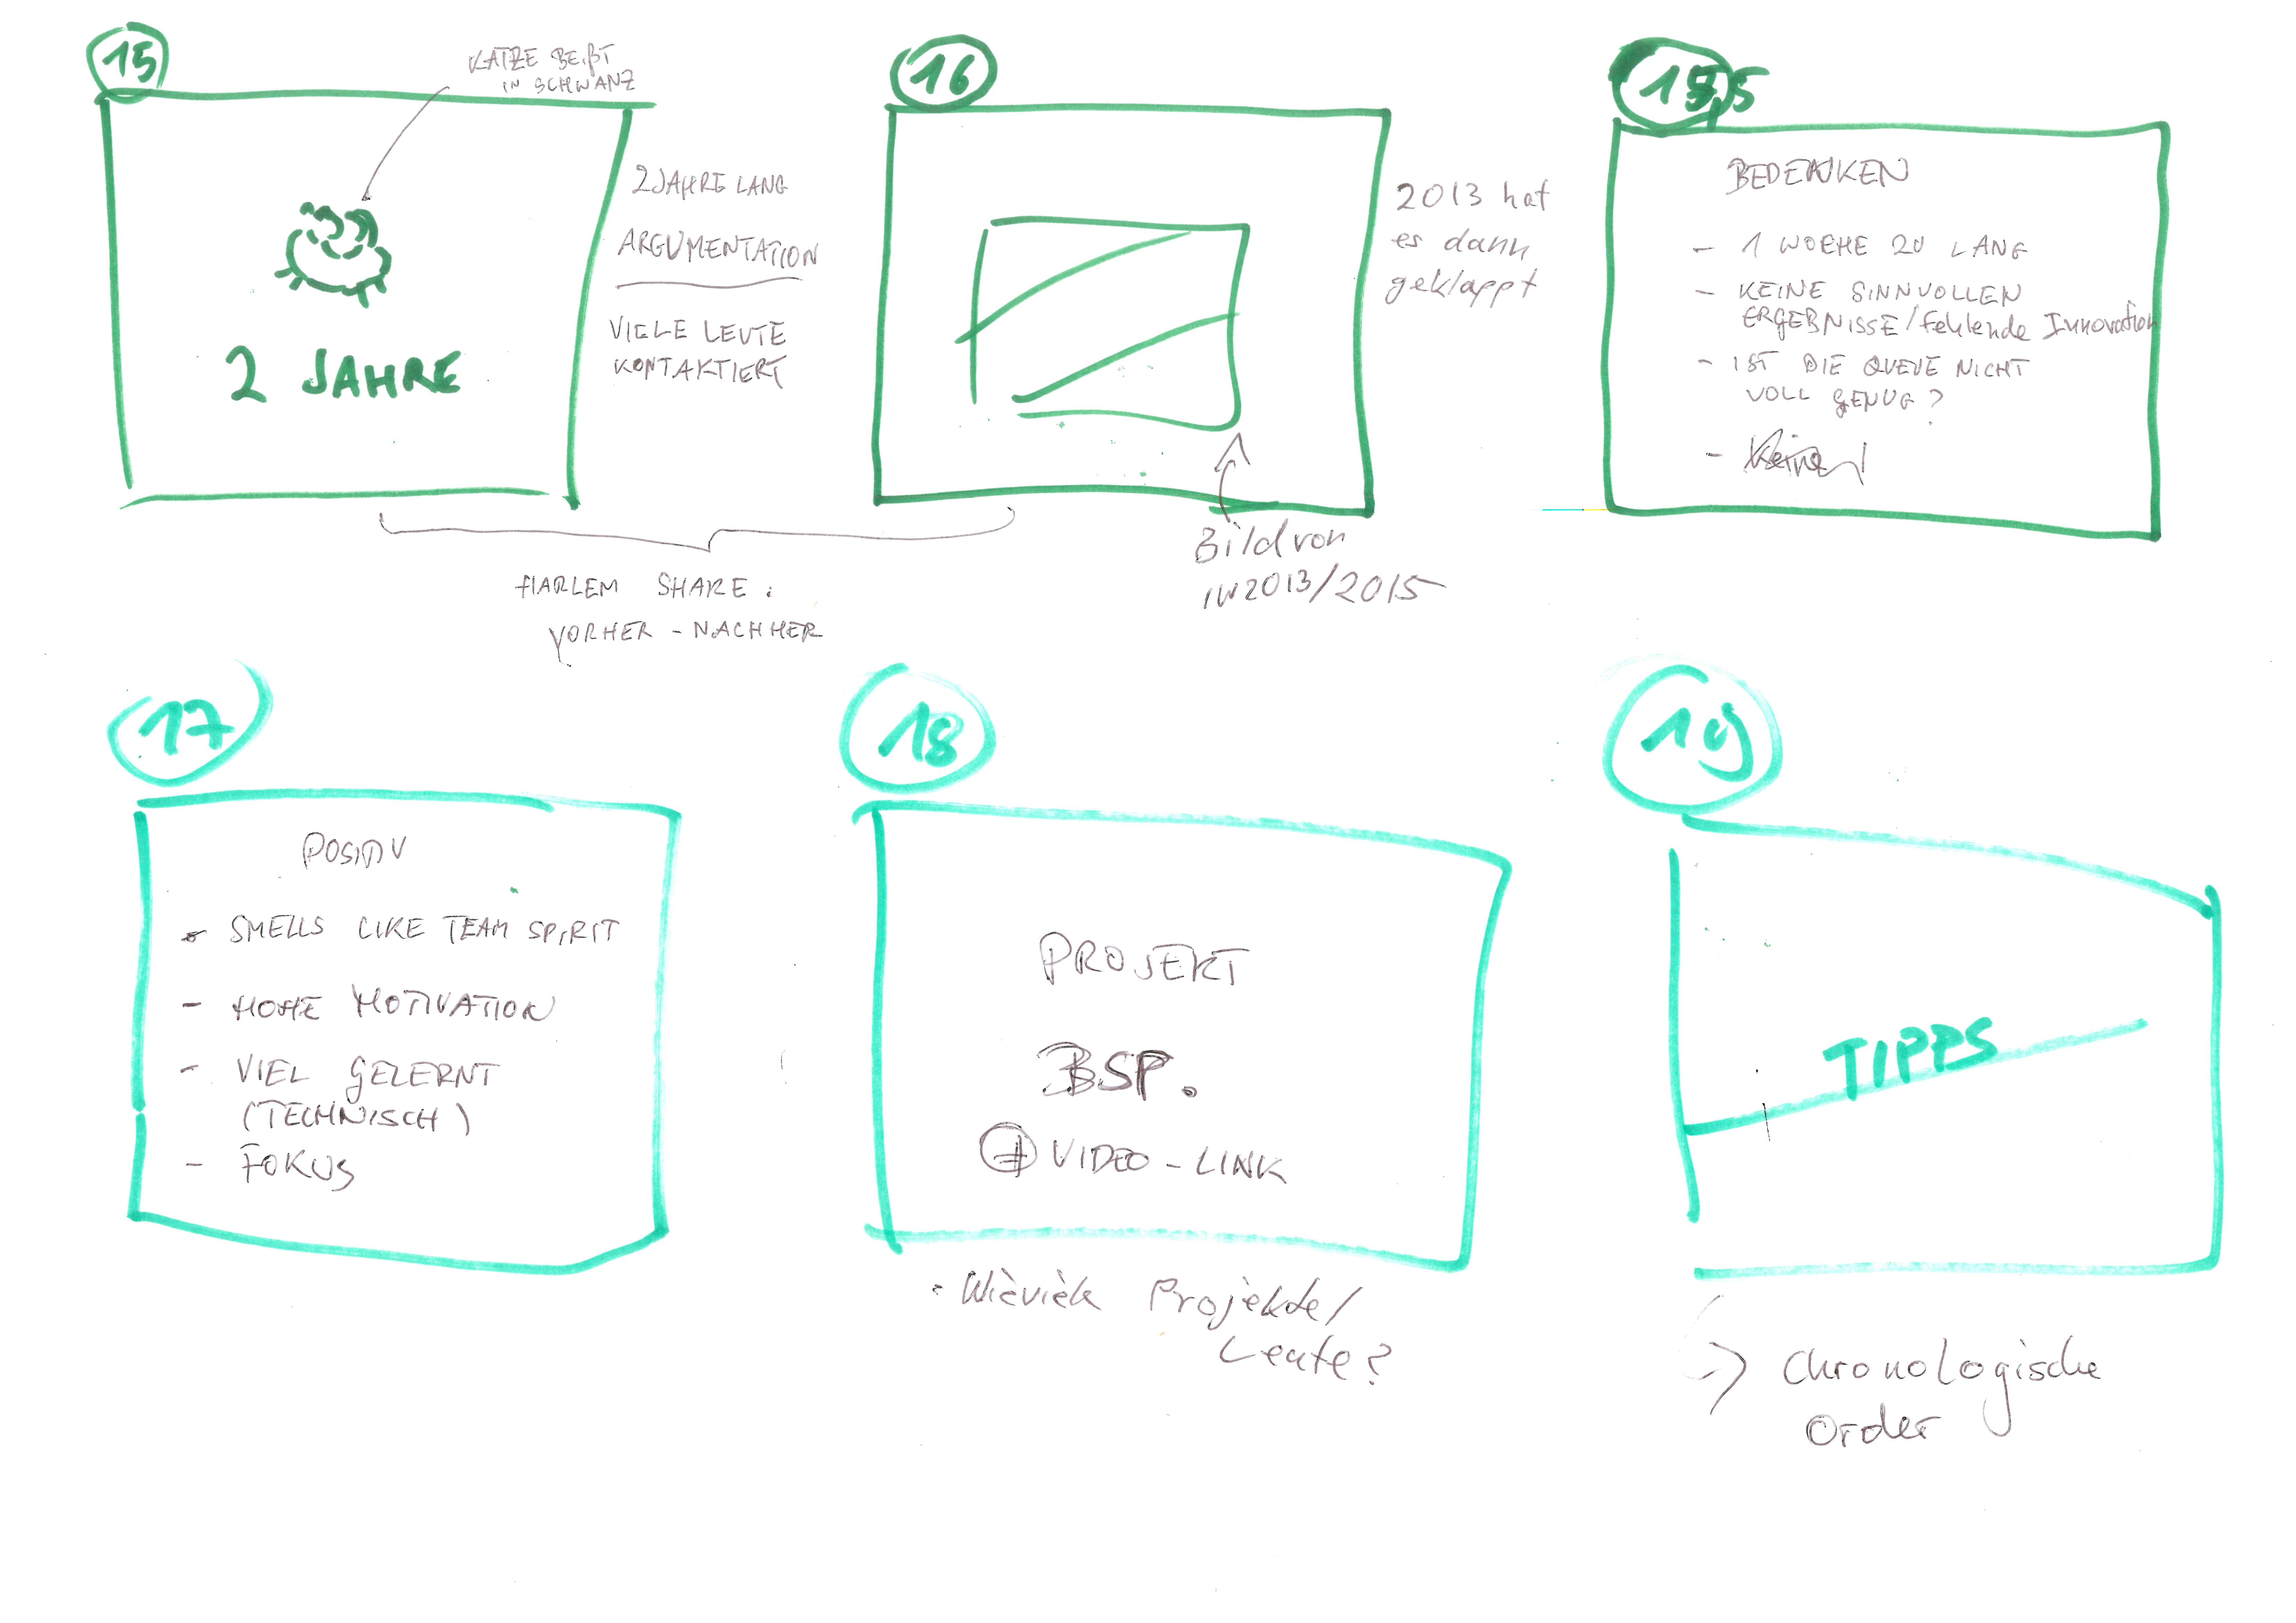 15
KATZE BEIßT
IN SCHWANZ
2 JAHRE
2 JAHRE LANG
ARGUMENTATION
VIELE LEUTE
KONTAKTIERT
16
2013 hat
es dann
geklappt
Bild von
IW2013/2015
HARLEM SHAKE:
VORHER - NACHHER
15,5
BEDENKEN
- 1 WOCHE ZU LANG
- KEINE SINNVOLLEN
ERGEBNISSE/Fehlende Innovation
- IST DIE QUEUE NICHT
VOLL GENUG?
-
17
POSITIV
- SMELLS LIKE TEAM SPIRIT
- HOHE MOTIVATION
- VIEL GELERNT
(TECHNISCH)
- FOKUS
18
PROJEKT
BSP.
+ VIDEO-LINK
- Wieviele Projekte/
Leute?
19
TIPPS
→ Chronologische
Order